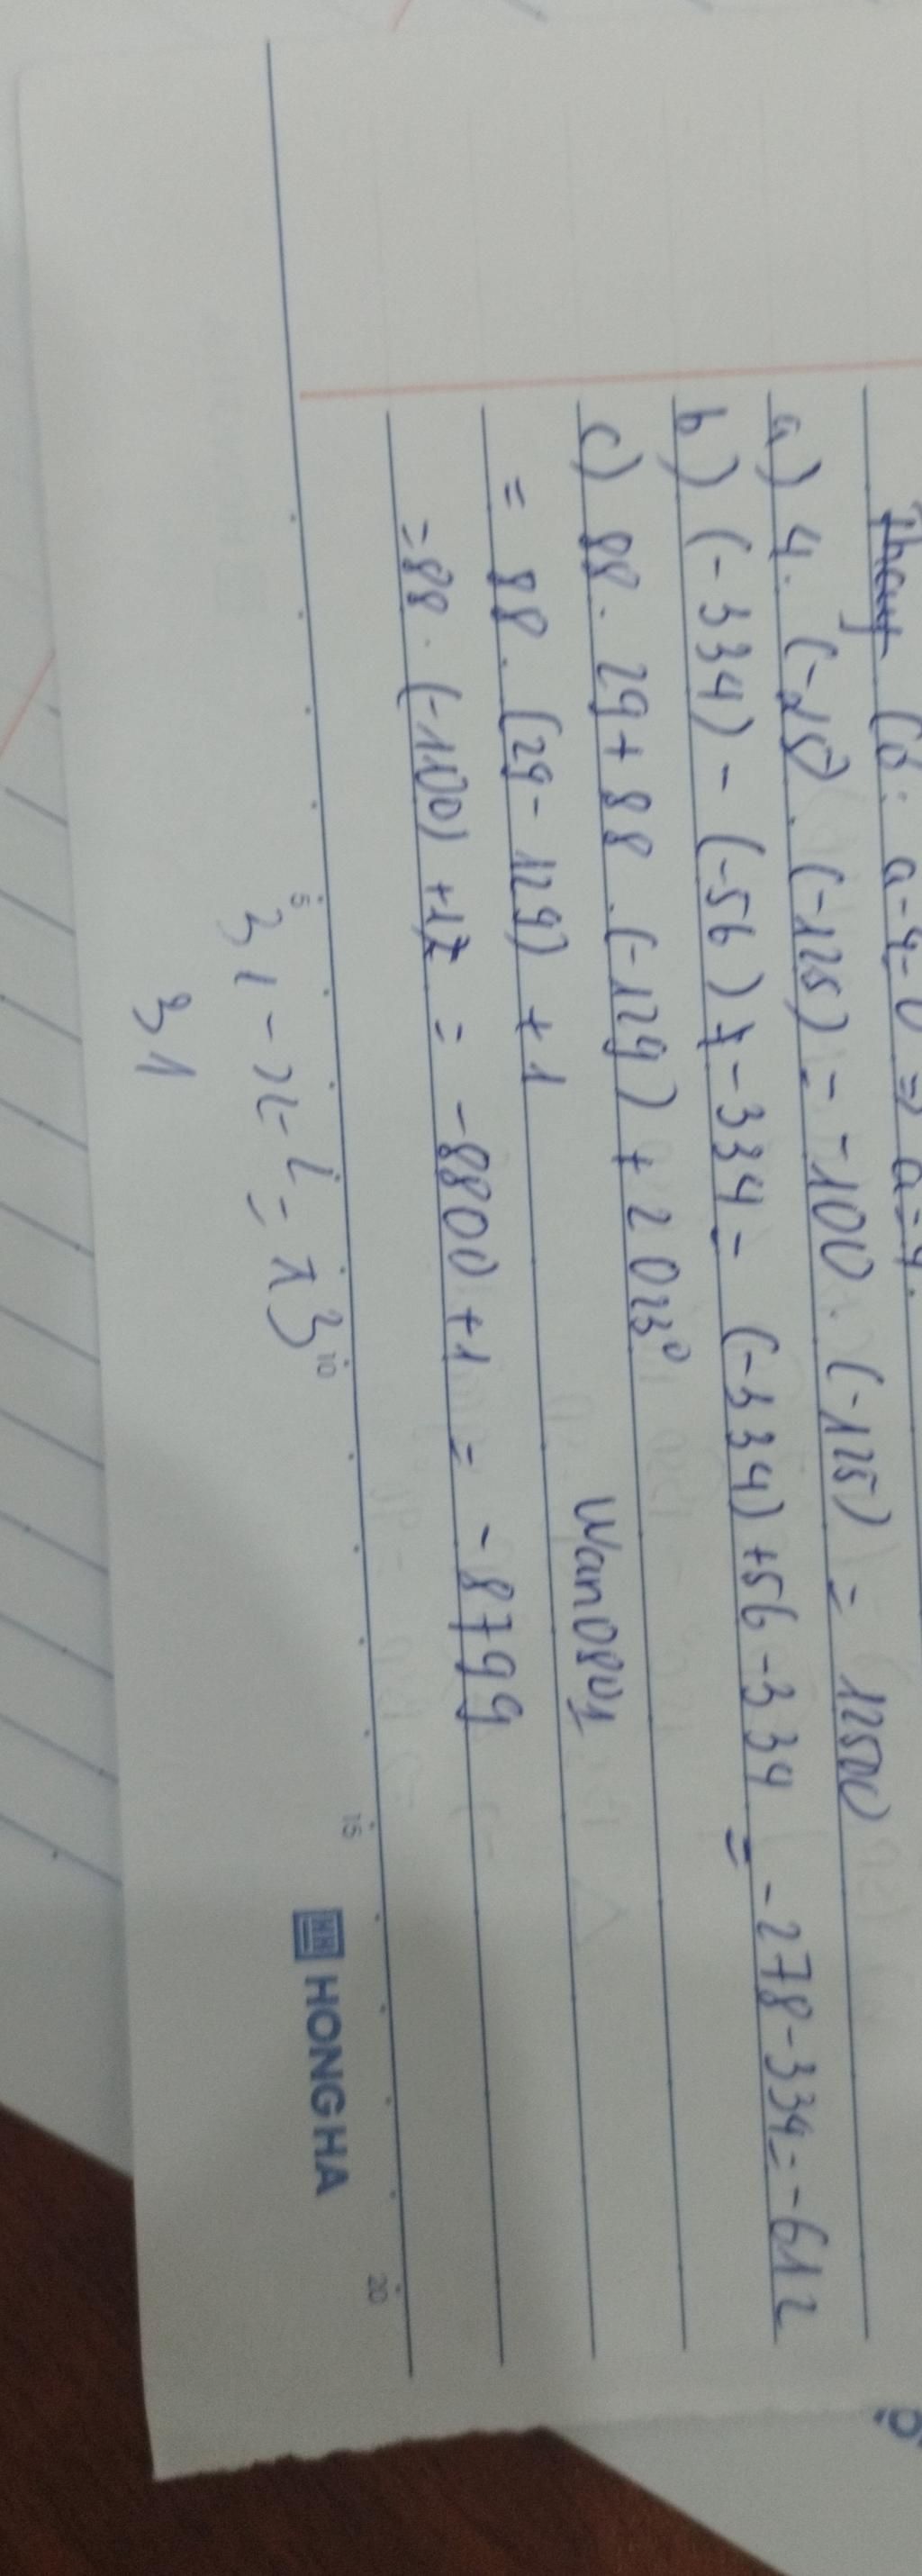 Có: a-9=0 => a=9.
a) 4. (-25). (-125) = -100. (-125) = 12500
b) (-334) - (-56) + -334 = (-334) +56 -334 = -278-334=-612
c) 88. 29+ 88. (-129) + 2023⁰
= 88. (29-129) +1
Wan0801
=88. (-100) +1 = -8800 +1 = -8799
5 10 15 20
HH HONG HA
31